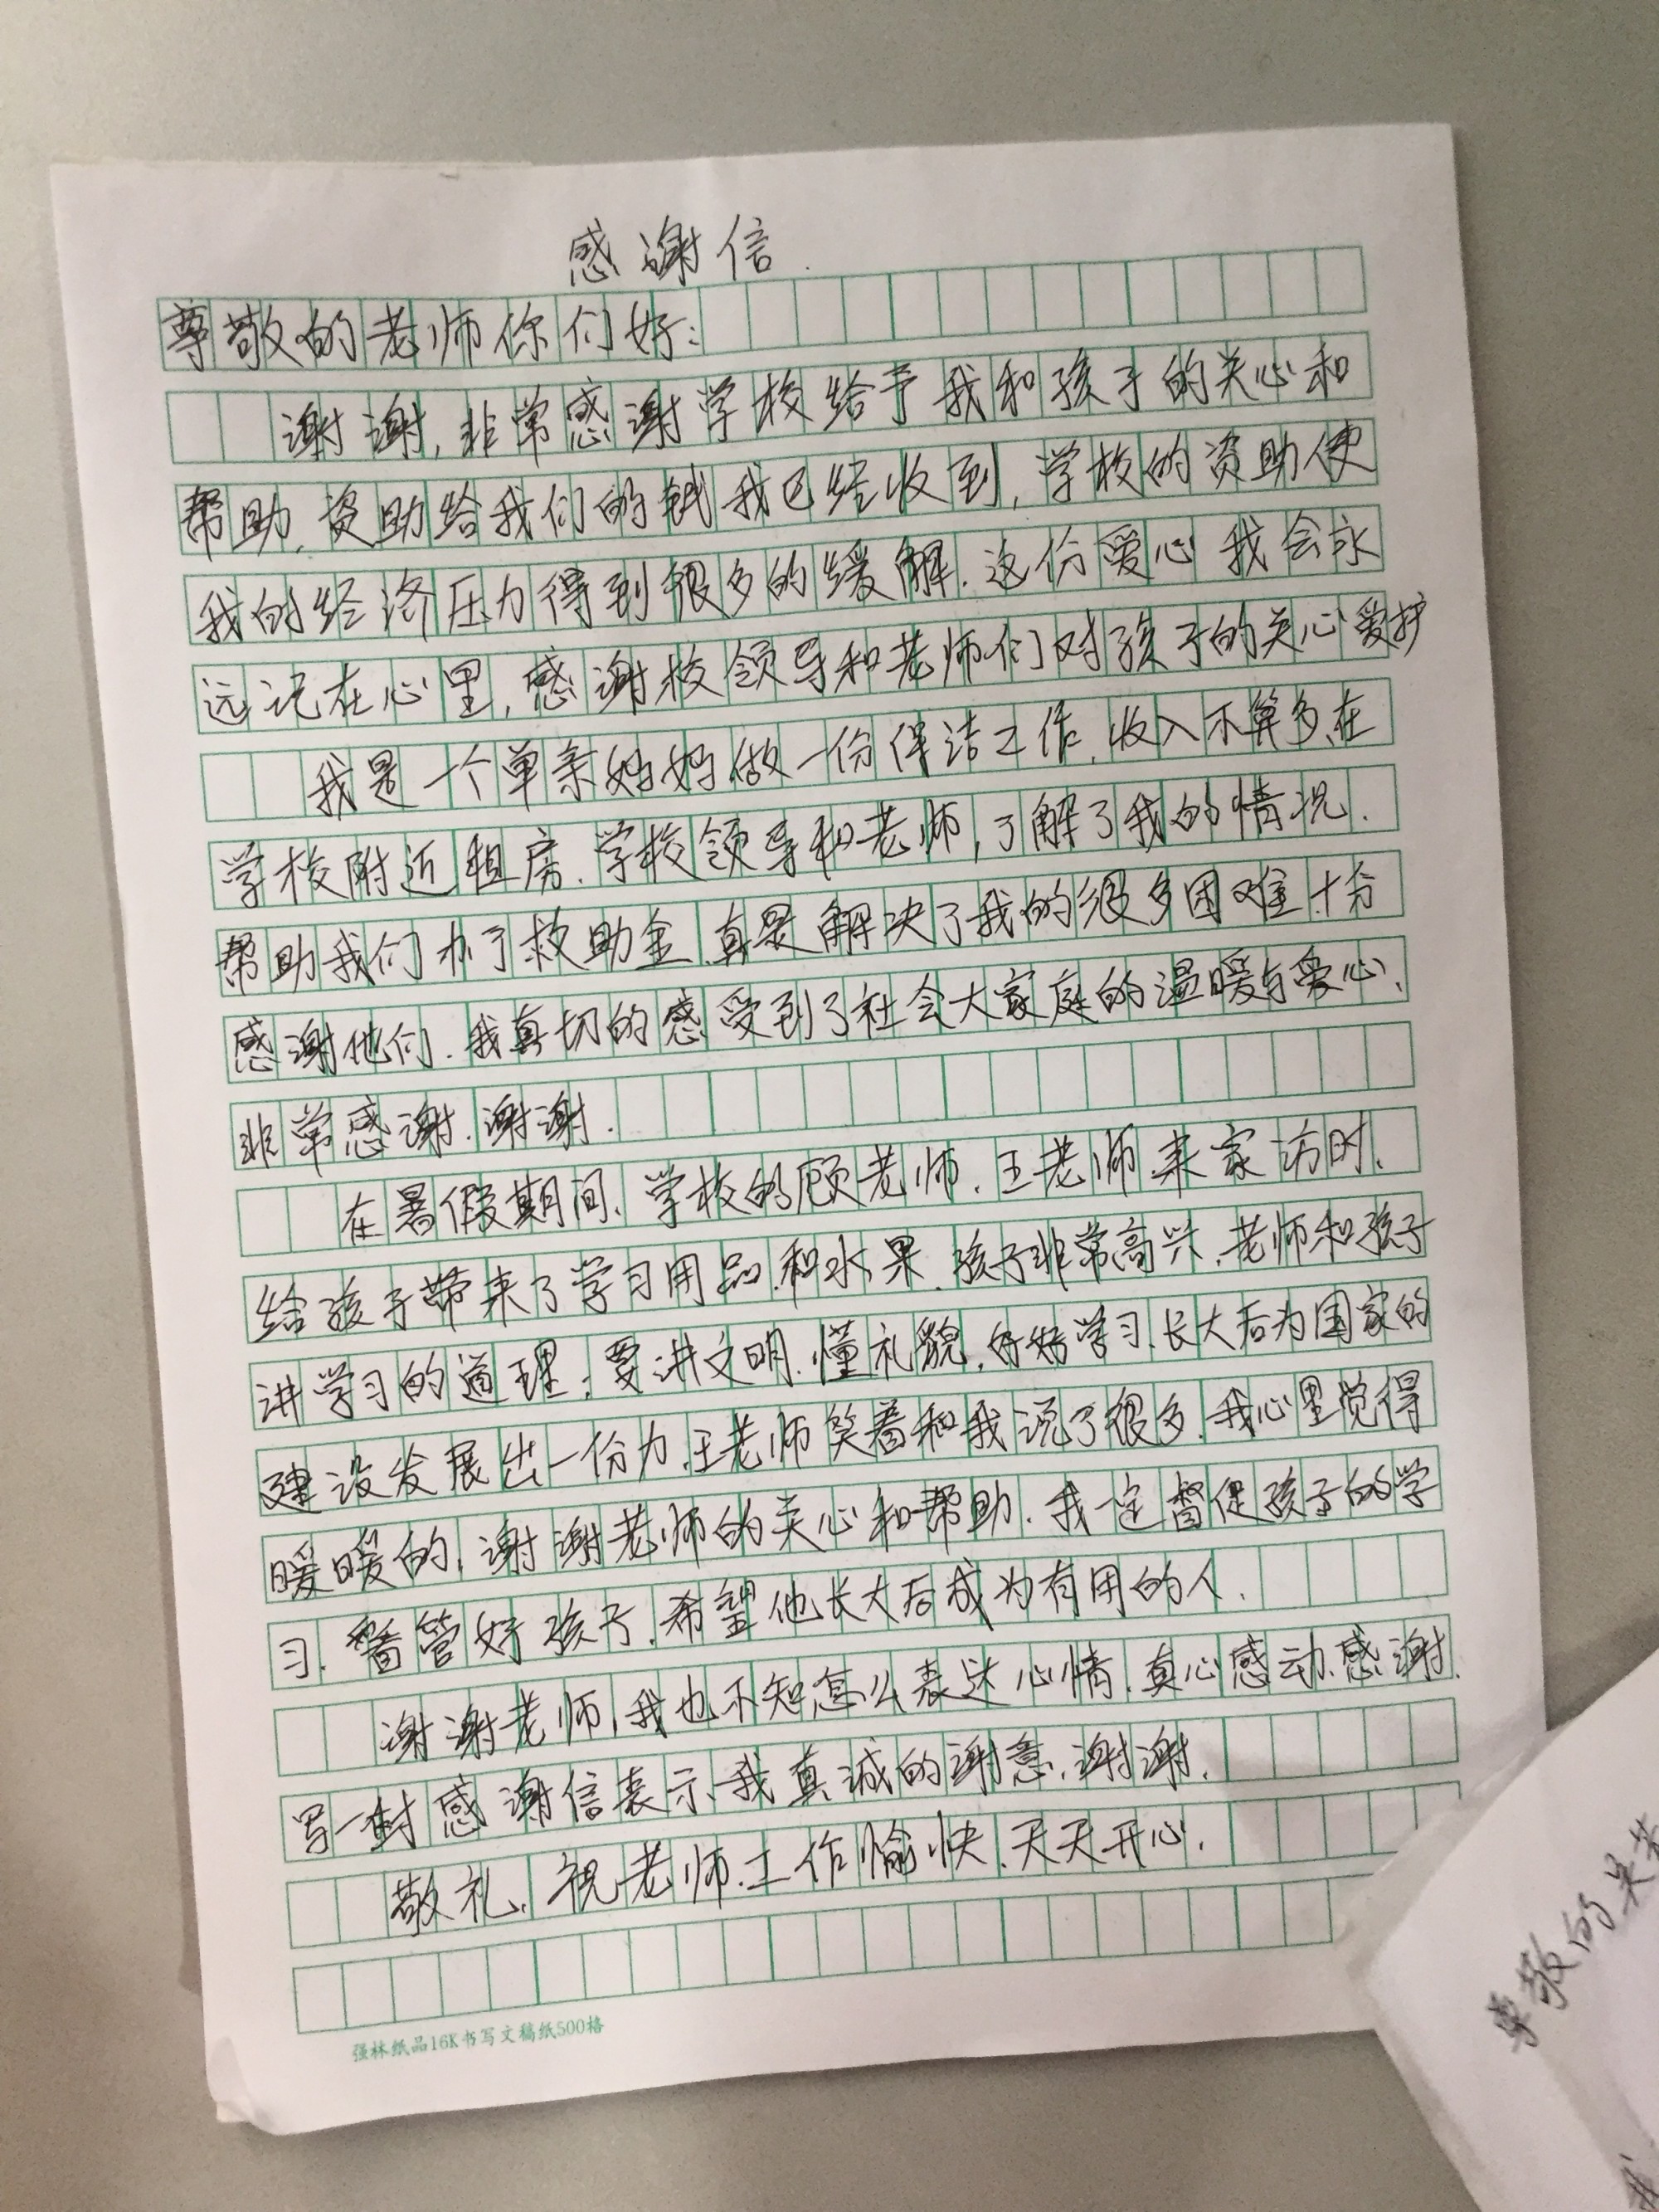 感谢信.
尊敬的老师你们好:
谢谢,非常感谢学校给予我和孩子的关心和
帮助.资助给我们的钱我已经收到,学校的资助使
我的经济压力得到很多的缓解.这份爱心我会永
远记在心里,感谢校领导和老师们对孩子的关心爱护
我是一个单亲妈妈,做一份保洁工作.收入不算多,在
学校附近租房.学校领导和老师,了解了我的情况.
帮助我们办了救助金.真是解决了我的很多困难.十分
感谢他们.我真切的感受到了社会大家庭的温暖与爱心、
非常感谢.谢谢.
在暑假期间、学校的顾老师.王老师来家访时、
给孩子带来了学习用品.和水果.孩子非常高兴.老师和孩子
讲学习的道理;要讲文明.懂礼貌,好好学习.长大后为国家的
建设发展出一份力.王老师笑着和我说了很多.我心里觉得
暖暖的,谢谢老师的关心和帮助.我一定督促孩子的学
习.管好孩子.希望他长大后成为有用的人.
谢谢老师,我也不知怎么表达心情.真心感动.感谢.
写一封感谢信表示我真诚的谢意.谢谢.
敬礼.祝老师工作愉快.天天开心.
强林纸品16K书写文稿纸500格
尊敬的吴